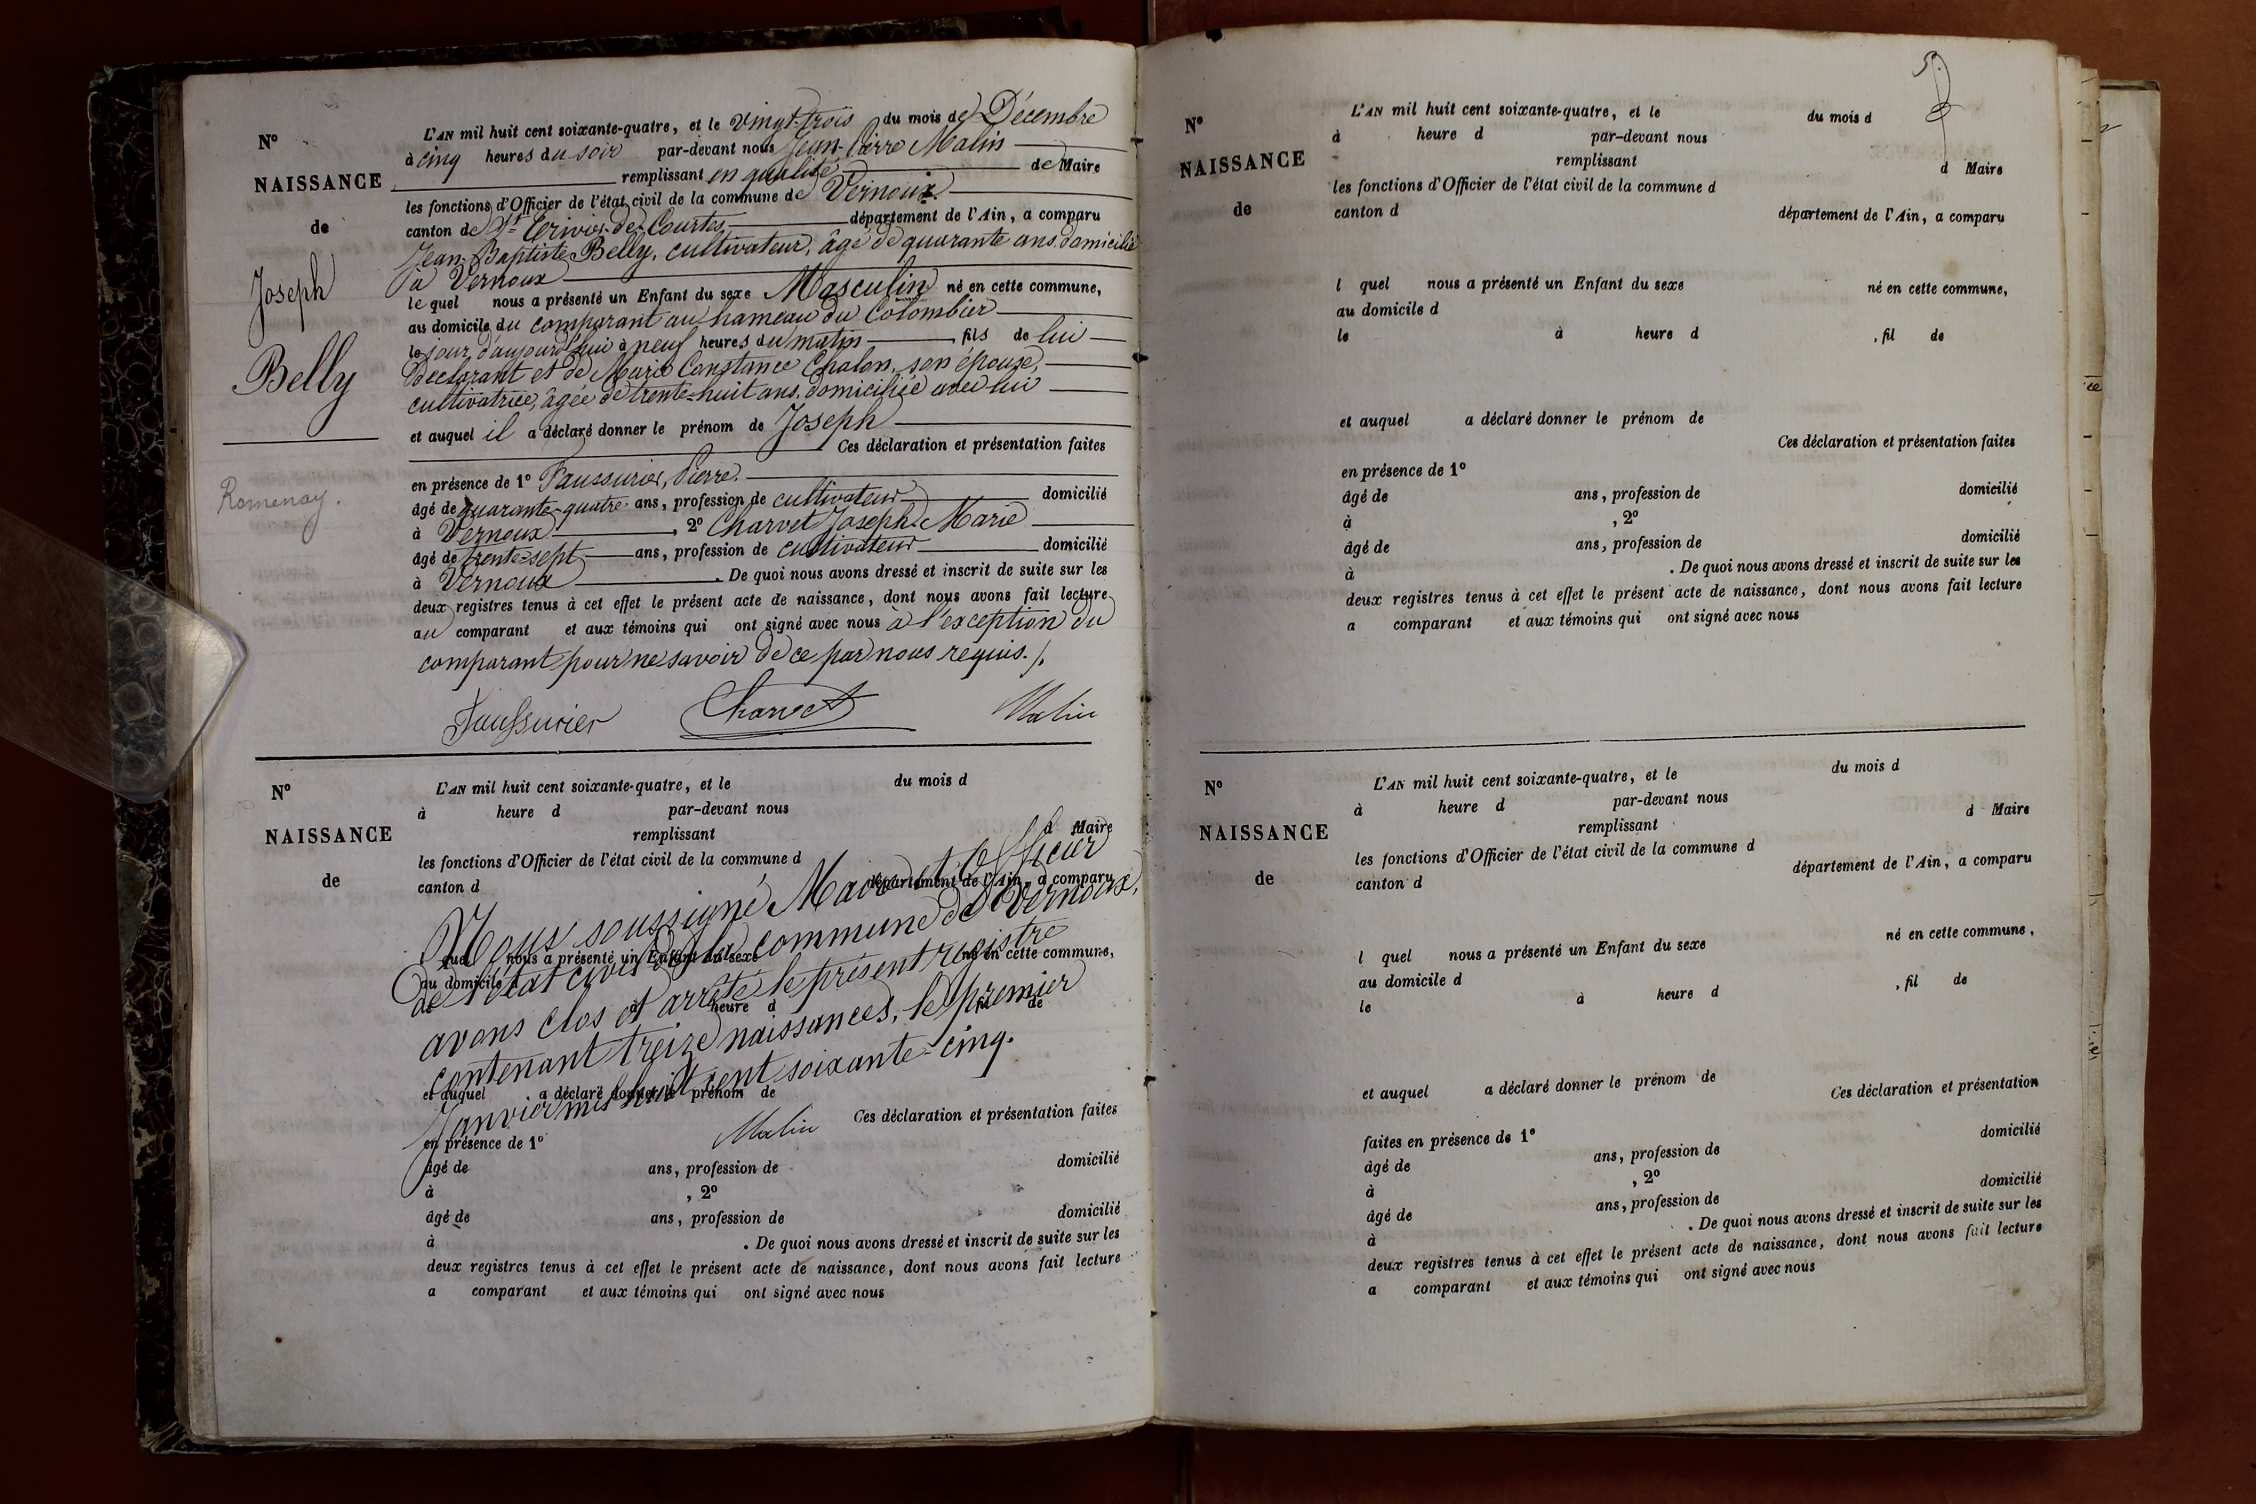 N°
NAISSANCE
de
Joseph
Belly
Romenay.
L'AN mil huit cent soixante-quatre, et le vingt-trois du mois de Décembre
à cinq heures du soir par-devant nous Jean-Pierre Malin
remplissant en qualité de Maire
les fonctions d'Officier de l'état civil de la commune de Vernoux
canton de St Trivier-de-Courtes, département de l'Ain, a comparu
Jean-Baptiste Belly, cultivateur, âgé de quarante ans, domicilié
à Vernoux
le quel nous a présenté un Enfant du sexe Masculin né en cette commune,
au domicile du comparant au hameau du Colombier
le jour d'aujourd'hui à neuf heures du matin, fils de lui
déclarant et de Marie Constance Chalon, son épouse,
cultivatrice, âgée de trente-huit ans, domiciliée avec lui
et auquel il a déclaré donner le prénom de Joseph
Ces déclaration et présentation faites
en présence de 1° Faussurier, Pierre.
âgé de quarante-quatre ans, profession de cultivateur domicilié
à Vernoux, 2° Charvet Joseph-Marie
âgé de trente-sept ans, profession de cultivateur domicilié
à Vernoux. De quoi nous avons dressé et inscrit de suite sur les
deux registres tenus à cet effet le présent acte de naissance, dont nous avons fait lecture
au comparant et aux témoins qui ont signé avec nous à l'exception du
comparant pour ne savoir de ce par nous requis./.
Faussurier Charvet Malin
N°
NAISSANCE
de
L'AN mil huit cent soixante-quatre, et le du mois d
à heure d par-devant nous
remplissant d Maire
les fonctions d'Officier de l'état civil de la commune d
canton d département de l'Ain, a comparu
Nous soussigné Maire et Officier
l quel nous a présenté un Enfant du sexe né en cette commune,
de l'état civil de la commune de Vernoux,
au domicile d
le à heure d , fil de
avons clos et arrêté le présent registre
contenant treize naissances, le premier
et auquel a déclaré donner le prénom de
Janvier mil huit cent soixante-cinq.
Malin
Ces déclaration et présentation faites
en présence de 1°
âgé de ans, profession de domicilié
à , 2°
âgé de ans, profession de domicilié
à . De quoi nous avons dressé et inscrit de suite sur les
deux registres tenus à cet effet le présent acte de naissance, dont nous avons fait lecture
a comparant et aux témoins qui ont signé avec nous
N°
NAISSANCE
de
L'AN mil huit cent soixante-quatre, et le du mois d
à heure d par-devant nous
remplissant d Maire
les fonctions d'Officier de l'état civil de la commune d
canton d département de l'Ain, a comparu
l quel nous a présenté un Enfant du sexe né en cette commune,
au domicile d
le à heure d , fil de
et auquel a déclaré donner le prénom de
Ces déclaration et présentation faites
en présence de 1°
âgé de ans, profession de domicilié
à , 2°
âgé de ans, profession de domicilié
à . De quoi nous avons dressé et inscrit de suite sur les
deux registres tenus à cet effet le présent acte de naissance, dont nous avons fait lecture
a comparant et aux témoins qui ont signé avec nous
N°
NAISSANCE
de
L'AN mil huit cent soixante-quatre, et le du mois d
à heure d par-devant nous
remplissant d Maire
les fonctions d'Officier de l'état civil de la commune d
canton d département de l'Ain, a comparu
l quel nous a présenté un Enfant du sexe né en cette commune,
au domicile d
le à heure d , fil de
et auquel a déclaré donner le prénom de
Ces déclaration et présentation
faites en présence de 1°
âgé de ans, profession de domicilié
à , 2°
âgé de ans, profession de domicilié
à . De quoi nous avons dressé et inscrit de suite sur les
deux registres tenus à cet effet le présent acte de naissance, dont nous avons fait lecture
a comparant et aux témoins qui ont signé avec nous